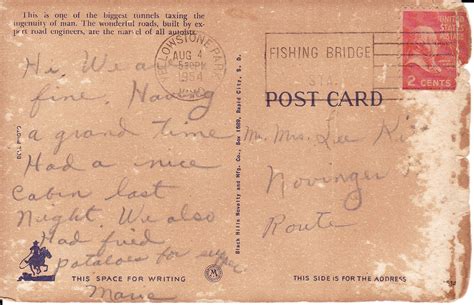 This is one of the biggest tunnels taxing the
ingenuity of man. The wonderful roads, built by ex-
pert road engineers, are the marvel of all autoists.
YELLOWSTONE PARK
AUG 4
5 30 PM
1954
WYO.
FISHING BRIDGE
STA.
UNITED STATES POSTAGE
2 CENTS
Hi. We are
fine. Having
a grand time
Had a nice
Cabin last
Night. We also
Had fried
potatoes for supper
Marie
Black Hills Novelty and Mfg. Co., Box 1089, Rapid City, S. D.
POST CARD
Mr. Mrs. Lee
Novinger
Route
THIS SPACE FOR WRITING
M
THIS SIDE IS FOR THE ADDRESS